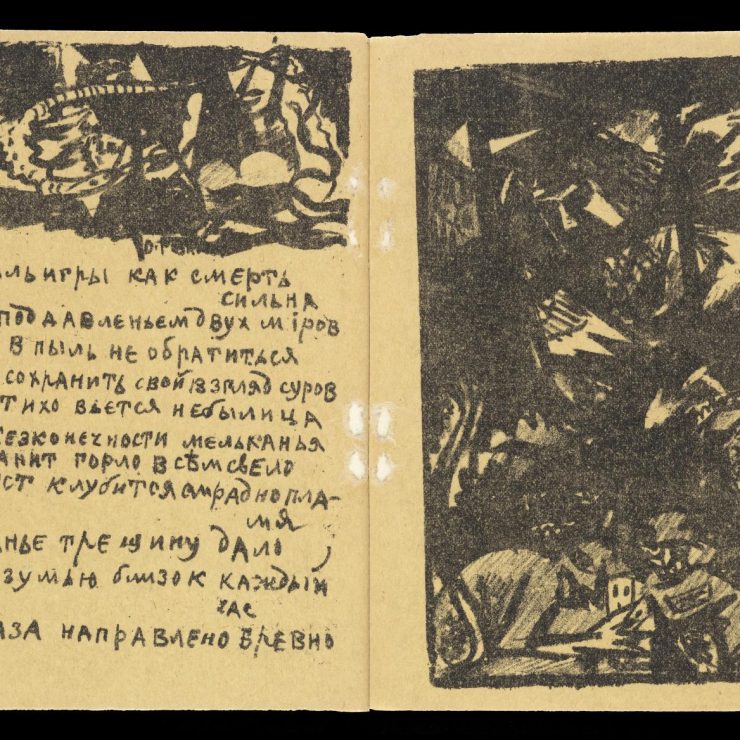 ль игры как смерть
сильна
под давленьем двух мiров
в пыль не обратиться
сохранить свой взгляд суров
тихо вьется небылица
безконечности мельканья
анит горло всѣм свело
ст клубится смрадно пла-
мя
нье трещину дало,
зумью близок каждый
час
аза направлено бревно